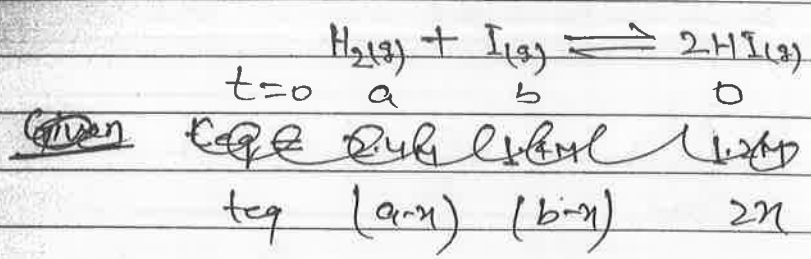 H₂(g) + I(g) ⇌ 2HI(g)
t=0 a b 0
Given
teq (a-x) (b-x) 2x